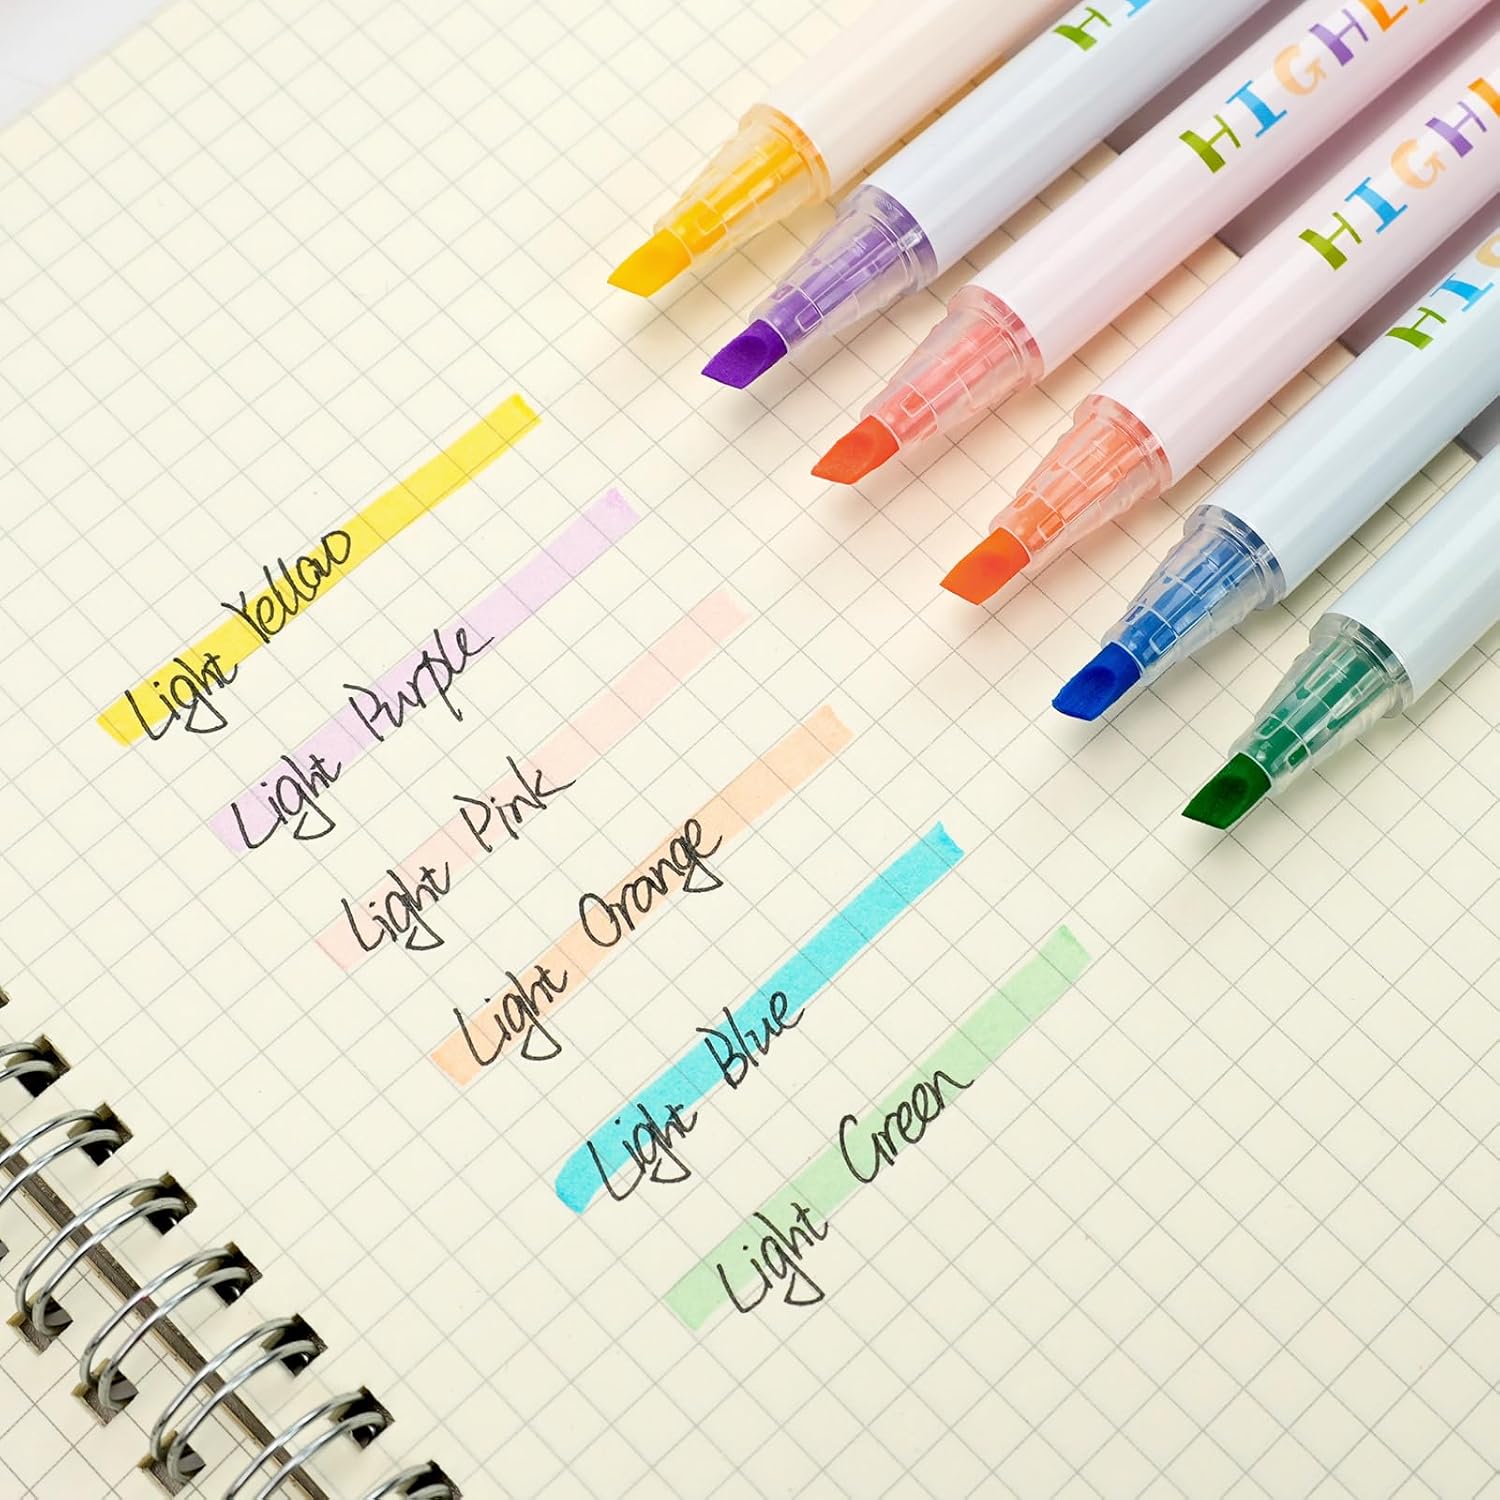 HI
HIGHL
HIGHL
HIG
Light Yellow
Light Purple
Light Pink
Light Orange
Light Blue
Light Green